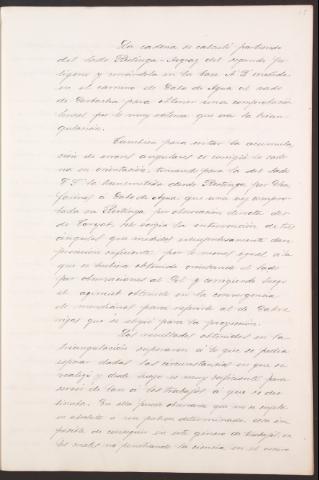 La cadena se calculó partiendo
del lado Restinga - Aguaz del segundo po-
lígono y uniéndola en la base A B medida
en el camino de Cabo de Agua al vado
de para obtener una comprobación
lineal por lo muy extensa que era la trian-
gulación.
También para evitar la acumula-
ción de errores angulares se corrigió la cade-
na en orientación, tomando para la del lado
la transmitida desde Restinga por
a Cabo de Agua, que una vez compro-
bada en Restinga por observación directa des-
de la intervención de tres
ángulos que medidos
precisión suficiente, por lo menos igual a la
que se hubiera obtenido orientando el lado
por observaciones al Sol y corrigiendo luego
el azimut obtenido en la convergencia
de meridianos para referirlo al de
que se eligió para la proyección.
Los resultados obtenidos en la
triangulación superaron a lo que se podía
esperar dadas las circunstancias en que se
realizó y desde luego es muy suficiente para
servir de base a los trabajos a que se des-
tinaba. En ella puede observarse que no se sujeta
en absoluto a un patrón determinado, cosa im-
posible de conseguir en este género de trabajos, en
los cuales no penetrando la ciencia en el